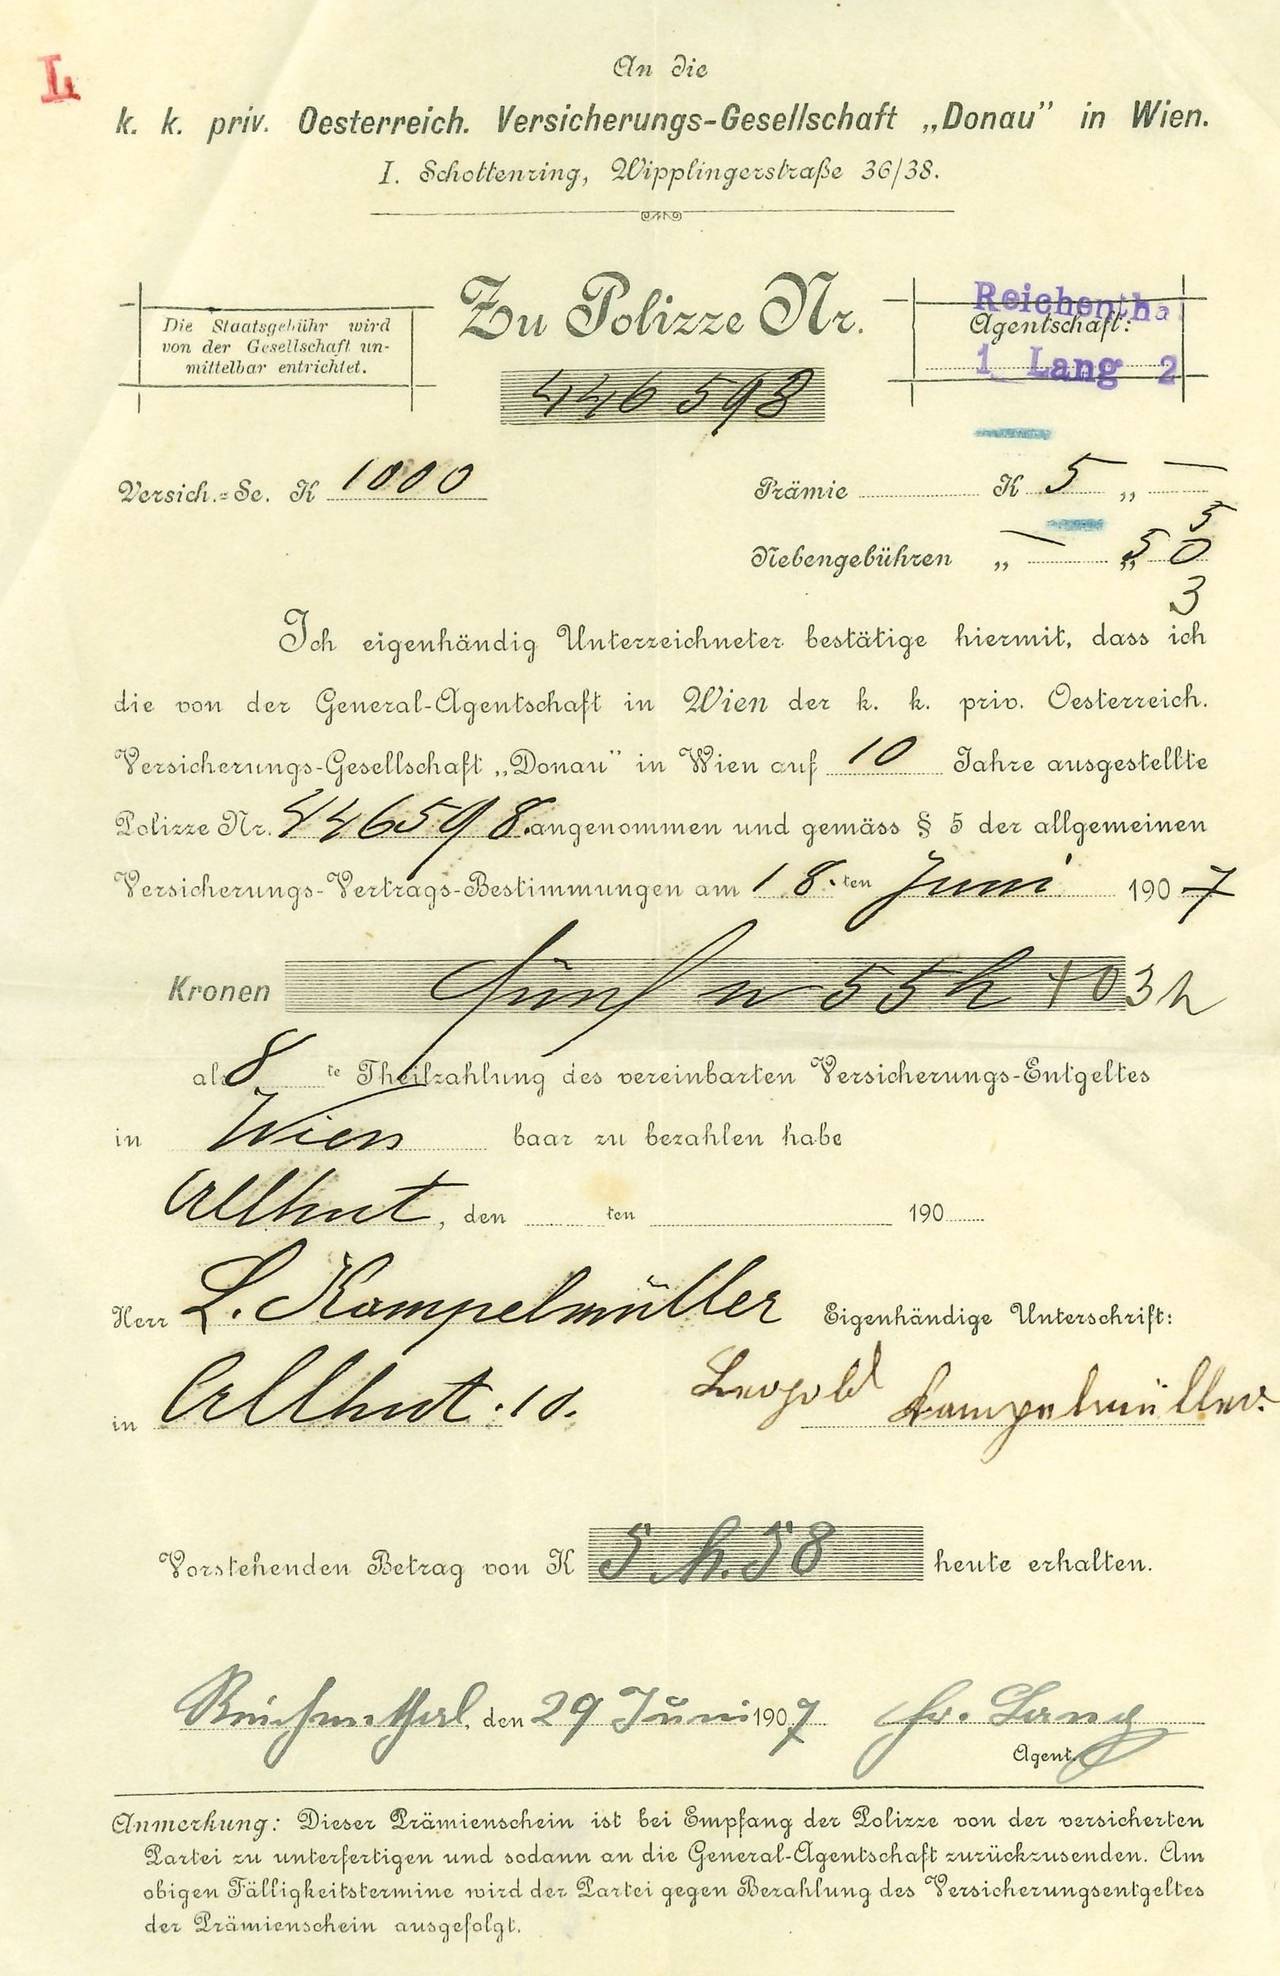 L
An die
k. k. priv. Oesterreich. Versicherungs-Gesellschaft „Donau” in Wien.
I. Schottenring, Wipplingerstraße 36/38.
Die Staatsgebühr wird
von der Gesellschaft un-
mittelbar entrichtet.
Zu Polizze Nr.
446598
Reichentha
Agentschaft:
1 Lang 2
Versich.=Se. K 1000
Prämie K 5 „ —
5
Nebengebühren „ — „ 50
3
Ich eigenhändig Unterzeichneter bestätige hiermit, dass ich
die von der General-Agentschaft in Wien der k. k. priv. Oesterreich.
Versicherungs-Gesellschaft „Donau” in Wien auf 10 Jahre ausgestellte
Polizze Nr. 446598. angenommen und gemäss § 5 der allgemeinen
Versicherungs-Vertrags-Bestimmungen am 18. ten Juni 1907
Kronen fünf u 55 h + 03 h
als 8 te Theilzahlung des vereinbarten Versicherungs-Entgeltes
in Wien baar zu bezahlen habe
Allhut, den ten 190
Herr L. Kampelmüller Eigenhändige Unterschrift:
in Allhut. 10. Leopold Kampelmüller.
Vorstehenden Betrag von K 5 h. 58 heute erhalten.
Reichenthal, den 29 Juni 1907 Fr. Lang
Agent.
Anmerkung: Dieser Prämienschein ist bei Empfang der Polizze von der versicherten
Partei zu unterfertigen und sodann an die General-Agentschaft zurückzusenden. Am
obigen Fälligkeitstermine wird der Partei gegen Bezahlung des Versicherungsentgeltes
der Prämienschein ausgefolgt.